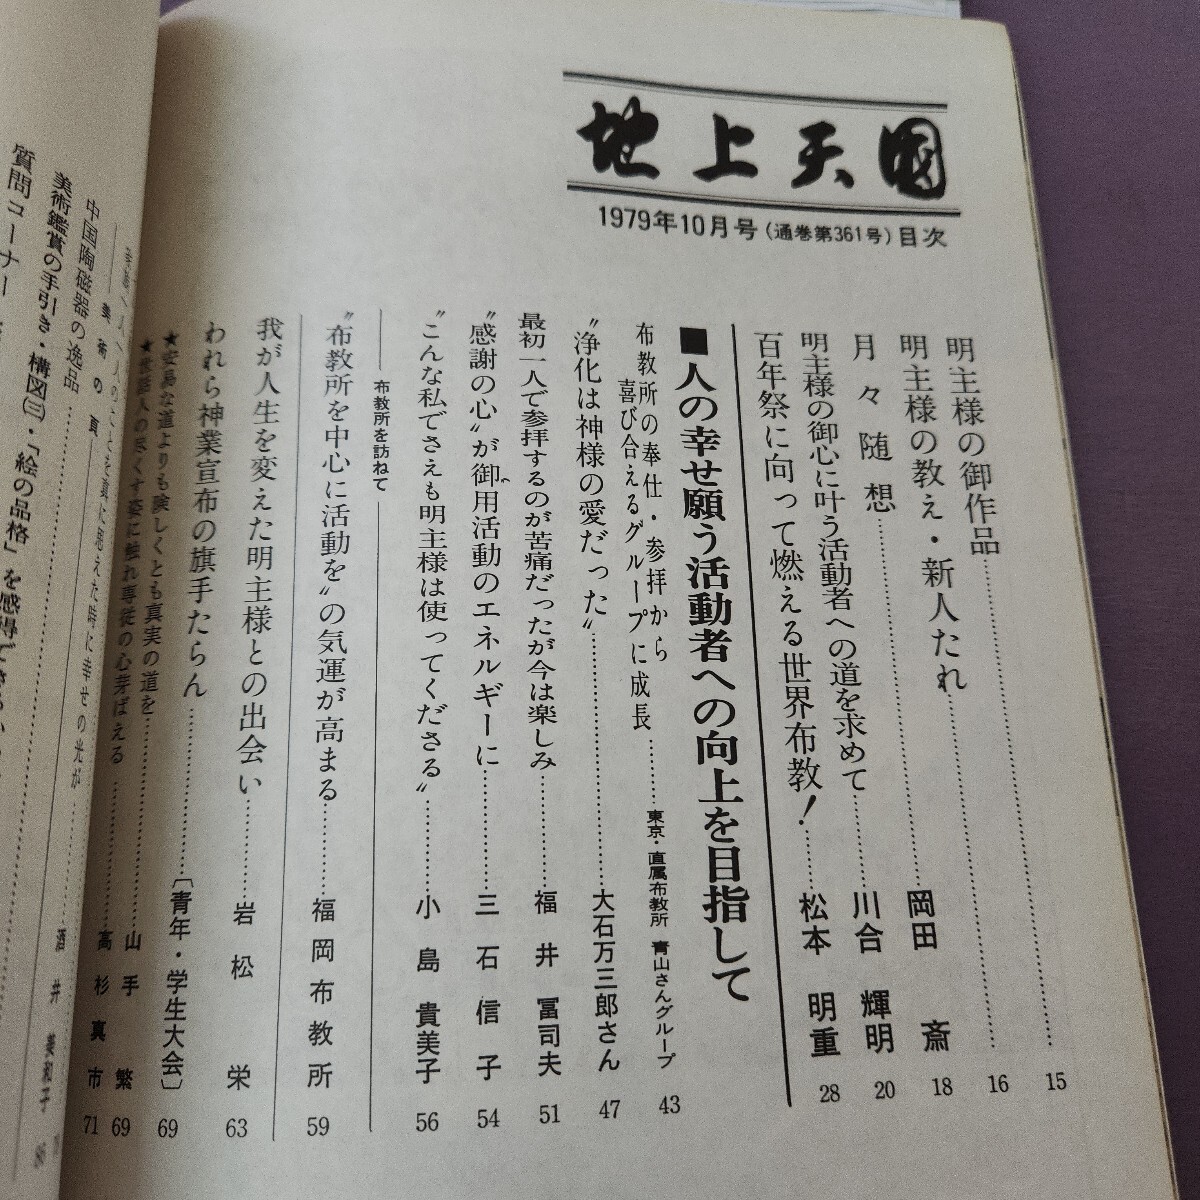 地上天国
1979年10月号(通巻第361号)目次
明主様の御作品…………15
明主様の教え・新人たれ…………16
月々随想…………岡田 斎 18
明主様の御心に叶う活動者への道を求めて…………川合 輝明 20
百年祭に向って燃える世界布教!…………松本 明重 28
■人の幸せ願う活動者への向上を目指して
布教所の奉仕・参拝から
喜び合えるグループに成長…………東京・直属布教所 青山さんグループ 43
〝浄化は神様の愛だった〟…………大石万三郎さん 47
最初一人で参拝するのが苦痛だったが今は楽しみ…………福井冨司夫 51
〝感謝の心〟が御用活動のエネルギーに…………三石信子 54
〝こんな私でさえも明主様は使ってくださる〟…………小島貴美子 56
布教所を訪ねて
〝布教所を中心に活動を〟の気運が高まる…………福岡布教所 59
我が人生を変えた明主様との出会い…………岩松栄 63
われら神業宣布の旗手たらん…………〔青年・学生大会〕 69
★安易な道よりも険しくとも真実の道を…………山手繁 69
★世話人の尽くす姿に触れ専従の心芽ばえる…………高杉真市 71
美術の頁
中国陶磁器の逸品…………
美術鑑賞の手引き・構図(三)・「絵の品格」を感得
質問コーナー